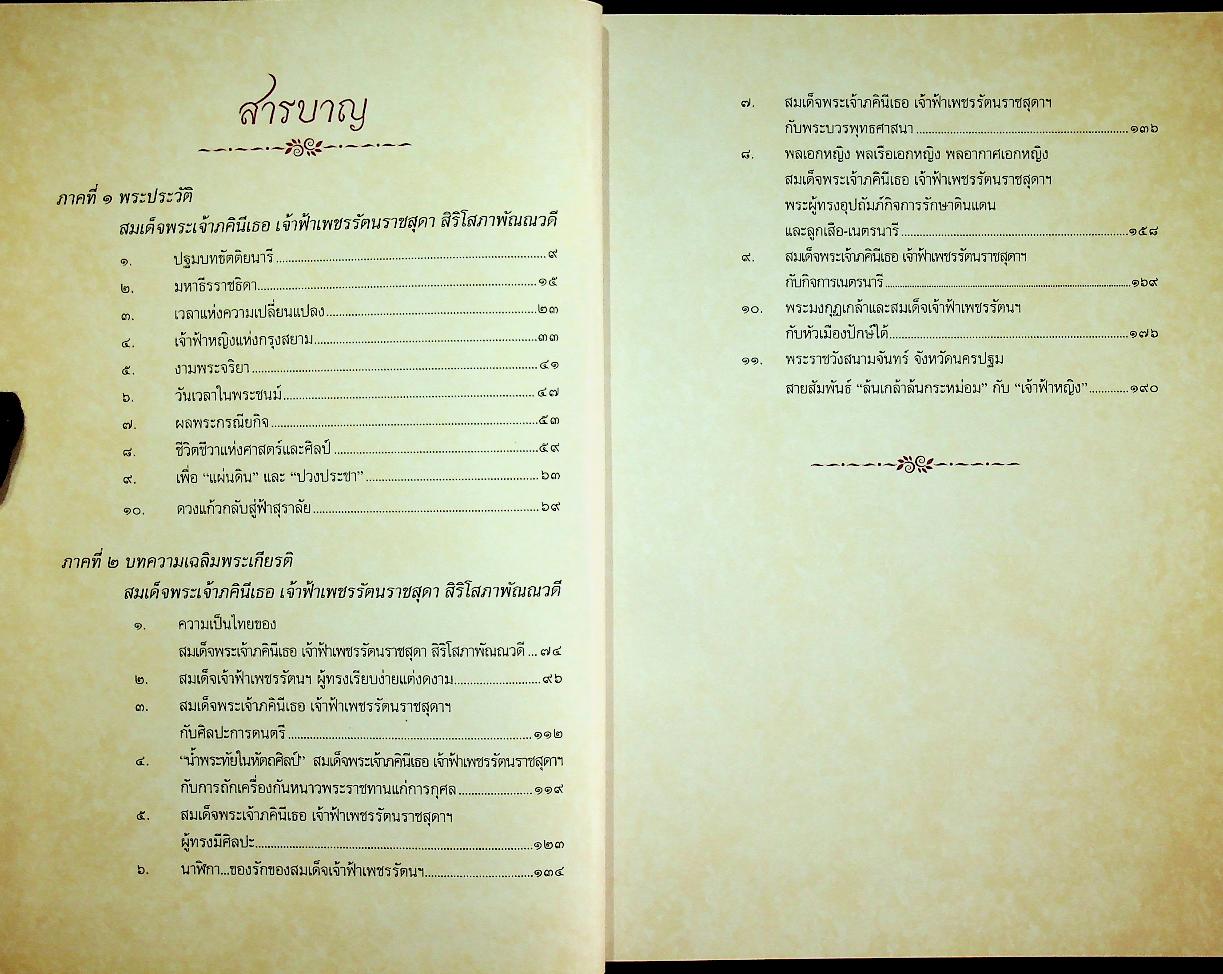 สารบาญ
ภาคที่ ๑ พระประวัติ
สมเด็จพระเจ้าภคินีเธอ เจ้าฟ้าเพชรรัตนราชสุดา สิริโสภาพัณณวดี
๑. ปฐมบทขัตติยนารี ๙
๒. มหาธีรราชธิดา ๑๕
๓. เวลาแห่งความเปลี่ยนแปลง ๒๓
๔. เจ้าฟ้าหญิงแห่งกรุงสยาม ๓๓
๕. งามพระจริยา ๔๑
๖. วันเวลาในพระชนม์ ๔๗
๗. ผลพระกรณียกิจ ๕๓
๘. ชีวิตชีวาแห่งศาสตร์และศิลป์ ๕๙
๙. เพื่อ “แผ่นดิน” และ “ปวงประชา” ๖๓
๑๐. ดวงแก้วกลับสู่ฟ้าสุราลัย ๖๙
ภาคที่ ๒ บทความเฉลิมพระเกียรติ
สมเด็จพระเจ้าภคินีเธอ เจ้าฟ้าเพชรรัตนราชสุดา สิริโสภาพัณณวดี
๑. ความเป็นไทยของ
สมเด็จพระเจ้าภคินีเธอ เจ้าฟ้าเพชรรัตนราชสุดา สิริโสภาพัณณวดี ... ๗๔
๒. สมเด็จเจ้าฟ้าเพชรรัตนฯ ผู้ทรงเรียบง่ายแต่งดงาม ๙๖
๓. สมเด็จพระเจ้าภคินีเธอ เจ้าฟ้าเพชรรัตนราชสุดาฯ
กับศิลปะการดนตรี ๑๑๒
๔. “น้ำพระทัยในหัตถศิลป์” สมเด็จพระเจ้าภคินีเธอ เจ้าฟ้าเพชรรัตนราชสุดาฯ
กับการถักเครื่องกันหนาวพระราชทานแก่การกุศล ๑๑๙
๕. สมเด็จพระเจ้าภคินีเธอ เจ้าฟ้าเพชรรัตนราชสุดาฯ
ผู้ทรงมีศิลปะ ๑๒๓
๖. นาฬิกา...ของรักของสมเด็จเจ้าฟ้าเพชรรัตนฯ ๑๓๔
๗. สมเด็จพระเจ้าภคินีเธอ เจ้าฟ้าเพชรรัตนราชสุดาฯ
กับพระบวรพุทธศาสนา ๑๓๖
๘. พลเอกหญิง พลเรือเอกหญิง พลอากาศเอกหญิง
สมเด็จพระเจ้าภคินีเธอ เจ้าฟ้าเพชรรัตนราชสุดาฯ
พระผู้ทรงอุปถัมภ์กิจการรักษาดินแดน
และลูกเสือ-เนตรนารี ๑๕๘
๙. สมเด็จพระเจ้าภคินีเธอ เจ้าฟ้าเพชรรัตนราชสุดาฯ
กับกิจการเนตรนารี ๑๖๙
๑๐. พระมงกุฎเกล้าและสมเด็จเจ้าฟ้าเพชรรัตนฯ
กับหัวเมืองปักษ์ใต้ ๑๗๖
๑๑. พระราชวังสนามจันทร์ จังหวัดนครปฐม
สายสัมพันธ์ “ล้นเกล้าล้นกระหม่อม” กับ “เจ้าฟ้าหญิง” ๑๙๐